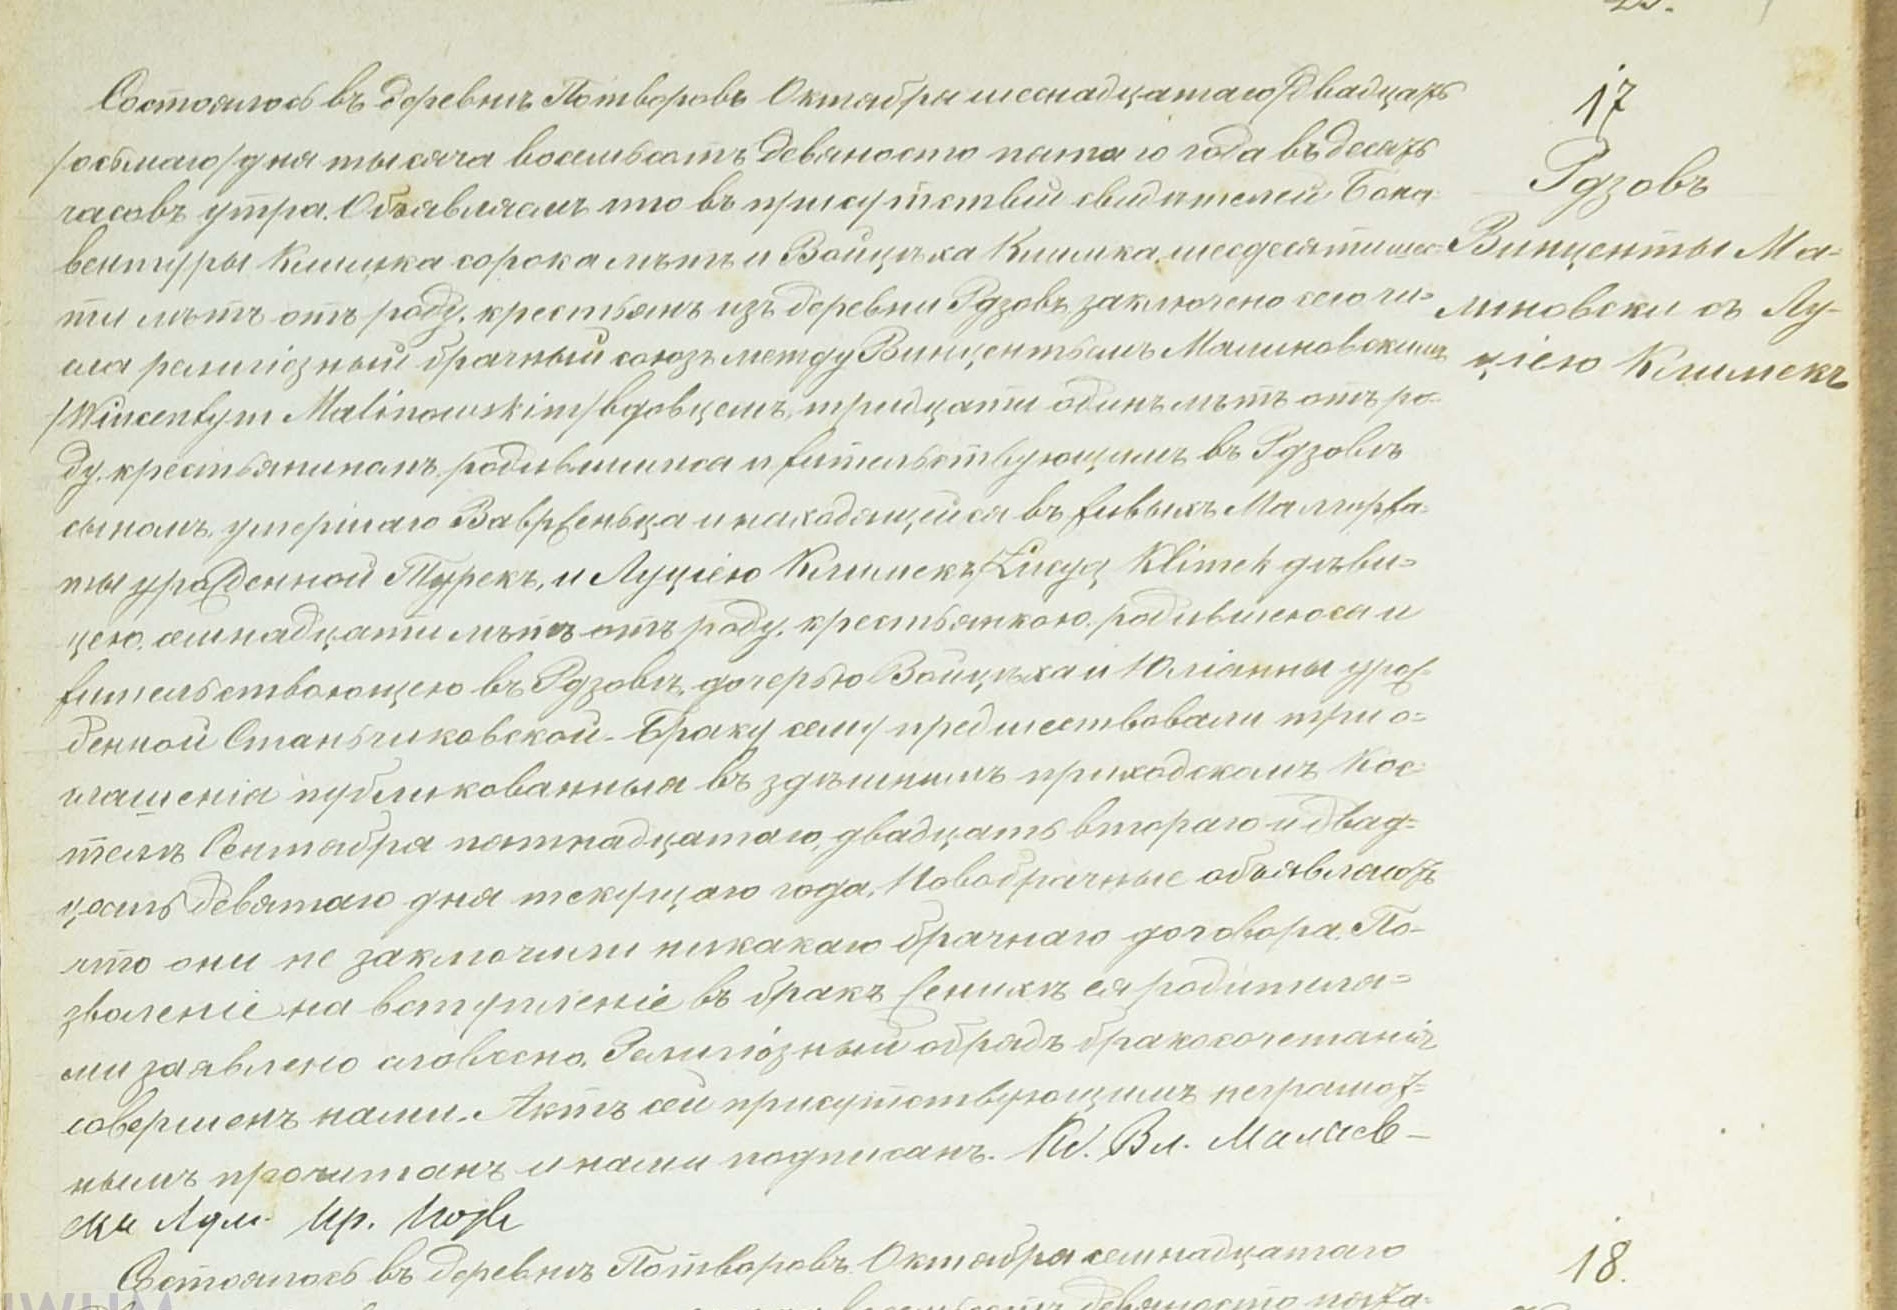 Состоялось въ деревнѣ Потворовъ Октября шеснадцатаго/двадцать
/осьмаго/дня тысяча восемьсотъ девяносто пятаго года въ десять
часовъ утра. Объявляемъ что въ присутствіи свидѣтелей Бона-
вентуры Климка сорока лѣтъ и Войцѣха Климка шесдесяти шес=
ти лѣтъ отъ роду, крестьянъ изъ деревни Рдзовъ заключено сего чи=
сла религіозный брачный союзъ между Винцентымъ Малиновскимъ
/Wincentym Malinowskim/ вдовцемъ, тридцати одинъ лѣтъ отъ ро-
ду, крестьяниномъ, родившимся и жительствующимъ въ Рдзовѣ
сыномъ, умершаго Вавржеńца и находящейся въ живыхъ Малгоржа-
ты урожденной Турекъ, и Луціею Климекъ/Łucyą Klimek дѣви=
цею, семнадцати лѣтъ отъ роду, крестьянкою, родившеюся и
жительствоющею въ Рдзовѣ, дочерью Войцѣха и Юліанны урож-
денной Станьчиковской. Браку сему предшествовали три о=
глашенія публикованныя въ здѣшнимъ приходскомъ Кос-
телѣ Сентября пятнадцатаго, двадцать втораго и двад=
цать девятаго дня текущаго года. Новобрачные объявляютъ
что они не заключили никакаго брачнаго договора. По-
зволеніе на вступленіе въ бракъ женихѣ ея родителя=
ми заявлено словесно. Религіозный обрядъ бракосочетанія
совершенъ нами. Актъ сей присутствующимъ неграмот=
нымъ прочитанъ и нами подписанъ. Кс. Вл. Малаев-
ски Адм. Пр. Потв
17
Рдзовъ
Винценты Ма-
линовски съ Лу-
ціею Климекъ
Состоялось въ деревнѣ Потворовъ Октября семнадцатаго
18.